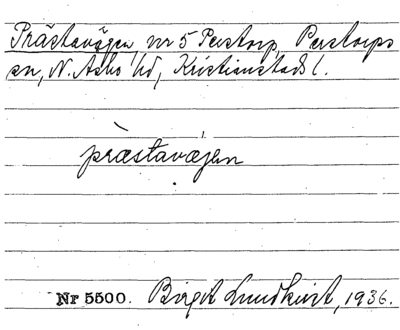 Prästavägen, nr 5 Perstorp, Perstorps
sn, N. Åsbo hd, Kristianstads l.
præstavæjen
Nr 5500. Birgit Lundkvist, 1936.